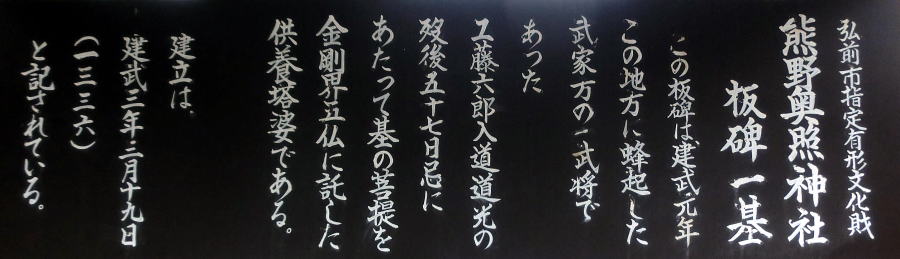 弘前市指定有形文化財
熊野奥照神社
板碑一基
この板碑は建武元年
この地方に蜂起した
武家方の一武将で
あった
工藤六郎入道道光の
歿後五十七日忌に
あたって基の菩提を
金剛界五仏に託した
供養塔婆である。
建立は、
建武三年二月十九日
(一三三六)
と記されている。